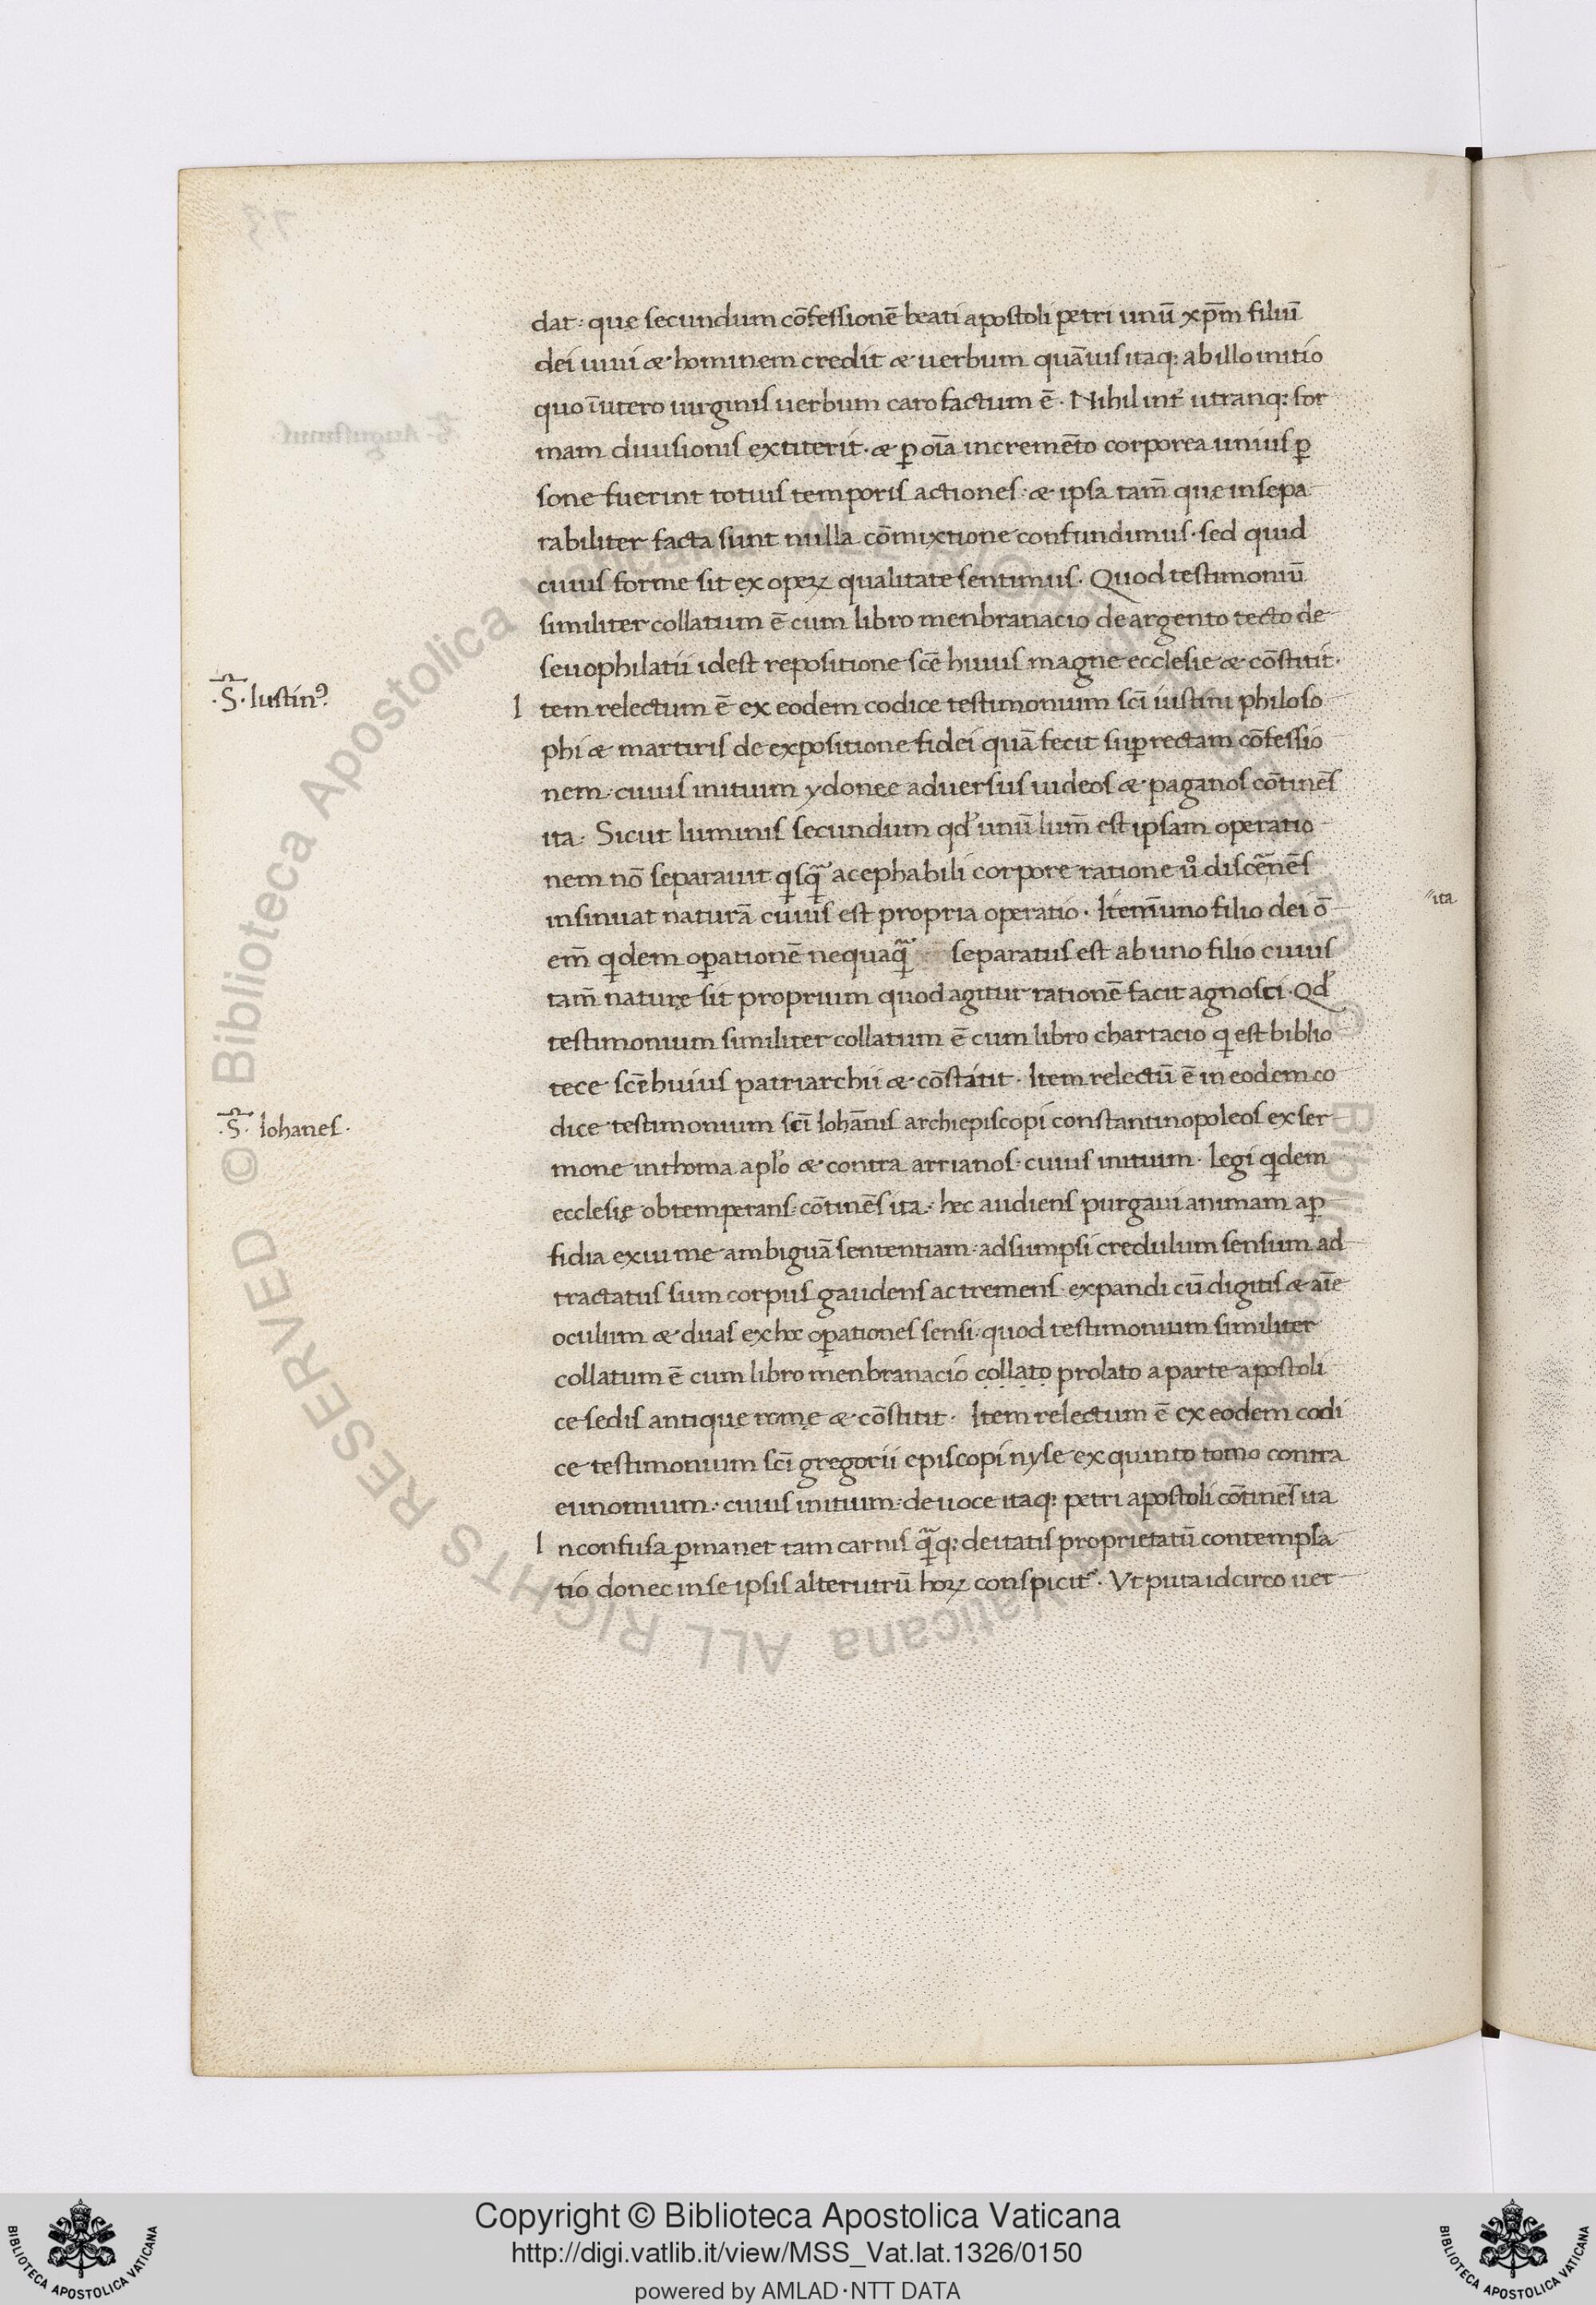 dat: quę secundum cōfessionē beati apostoli petri unū xp̄m filiū
dei uiui & hominem credit & uerbum quāuis itaq: ab illo initio
quo ī utero uirginis uerbum caro factum ē. Nihil int̄ utranq: for
mam diuisionis extiterit. & ꝑ oīa incremēto corporea unius ꝑ
sone fuerint totius temporis actiones: & ipsa tam̄ quę insepa
rabiliter facta sunt nulla cōmixtione confundimus. sed quid
cuius forme sit ex operꝝ qualitate sentimus. Quod testimoniū
similiter collatum ē cum libro menbranacio de argento tecto de
seuophilatii idest repositione scē huius magne ecclesie & cōstitit.
·S̄· Iustinꝰ
Item relectum ē ex eodem codice testimonium scī iustini philoso
phi & martiris de expositione fidei quā fecit suꝑ rectam cōfessio
nem. cuius initium ydonee aduersus iudeos & paganos cōtinēs
ita. Sicut luminis secundum qd' unū lum̄ est ipsam operatio
nem nō separauit qͥsqͣ acephabili corpore ratione uͦ discēnēs
insinuat naturā cuius est propria operatio. Item̄ uno filio dei ō
em̄ qͥdem oꝑationē nequaqͣ separatus est ab uno filio cuius
ita
tam̄ naturę sit proprium quod agitur rationē facit agnosci. Qd'
testimonium similiter collatum ē cum libro chartacio qͥ est biblio
tece scē huius patriarchii & cōstitit. Item relectū ē in eodem co
·S̄· Iohanes.
dice testimonium scī Iohānis archiepiscopi constantinopoleos ex ser
mone in thoma apl'o & contra arrianos. cuius initium. legi qͥdem
ecclesię obtemperans: cōtinēs ita: hec audiens purgaui animam a ꝑ
fidia exui me ambiguā sententiam: adsumpsi credulum sensum ad
tractatus sum corpus gaudens ac tremens expandi cū digitis & aīe
oculum & duas ex hoc oꝑationes sensi. quod testimonium similiter
collatum ē cum libro menbranacio collato prolato a parte apostoli
ce sedis antiquę romę & cōstitit. Item relectum ē ex eodem codi
ce testimonium scī gregorii episcopi nyse ex quinto tomo contra
eunomium: cuius initium: de uoce itaq: petri apostoli cōtinēs ita
Inconfusa ꝑmanet tam carnis qͣq: deitatis proprietatū contempla
tio donec in se ipsis alterutrū horꝝ conspicit᷑. Vt puta idcirco uer
Copyright © Biblioteca Apostolica Vaticana
http://digi.vatlib.it/view/MSS_Vat.lat.1326/0150
powered by AMLAD·NTT DATA
BIBLIOTECA APOSTOLICA VATICANA
BIBLIOTECA APOSTOLICA VATICANA
© Biblioteca Apostolica Vaticana ALL RIGHTS RESERVED
© Biblioteca Apostolica Vaticana ALL RIGHTS RESERVED